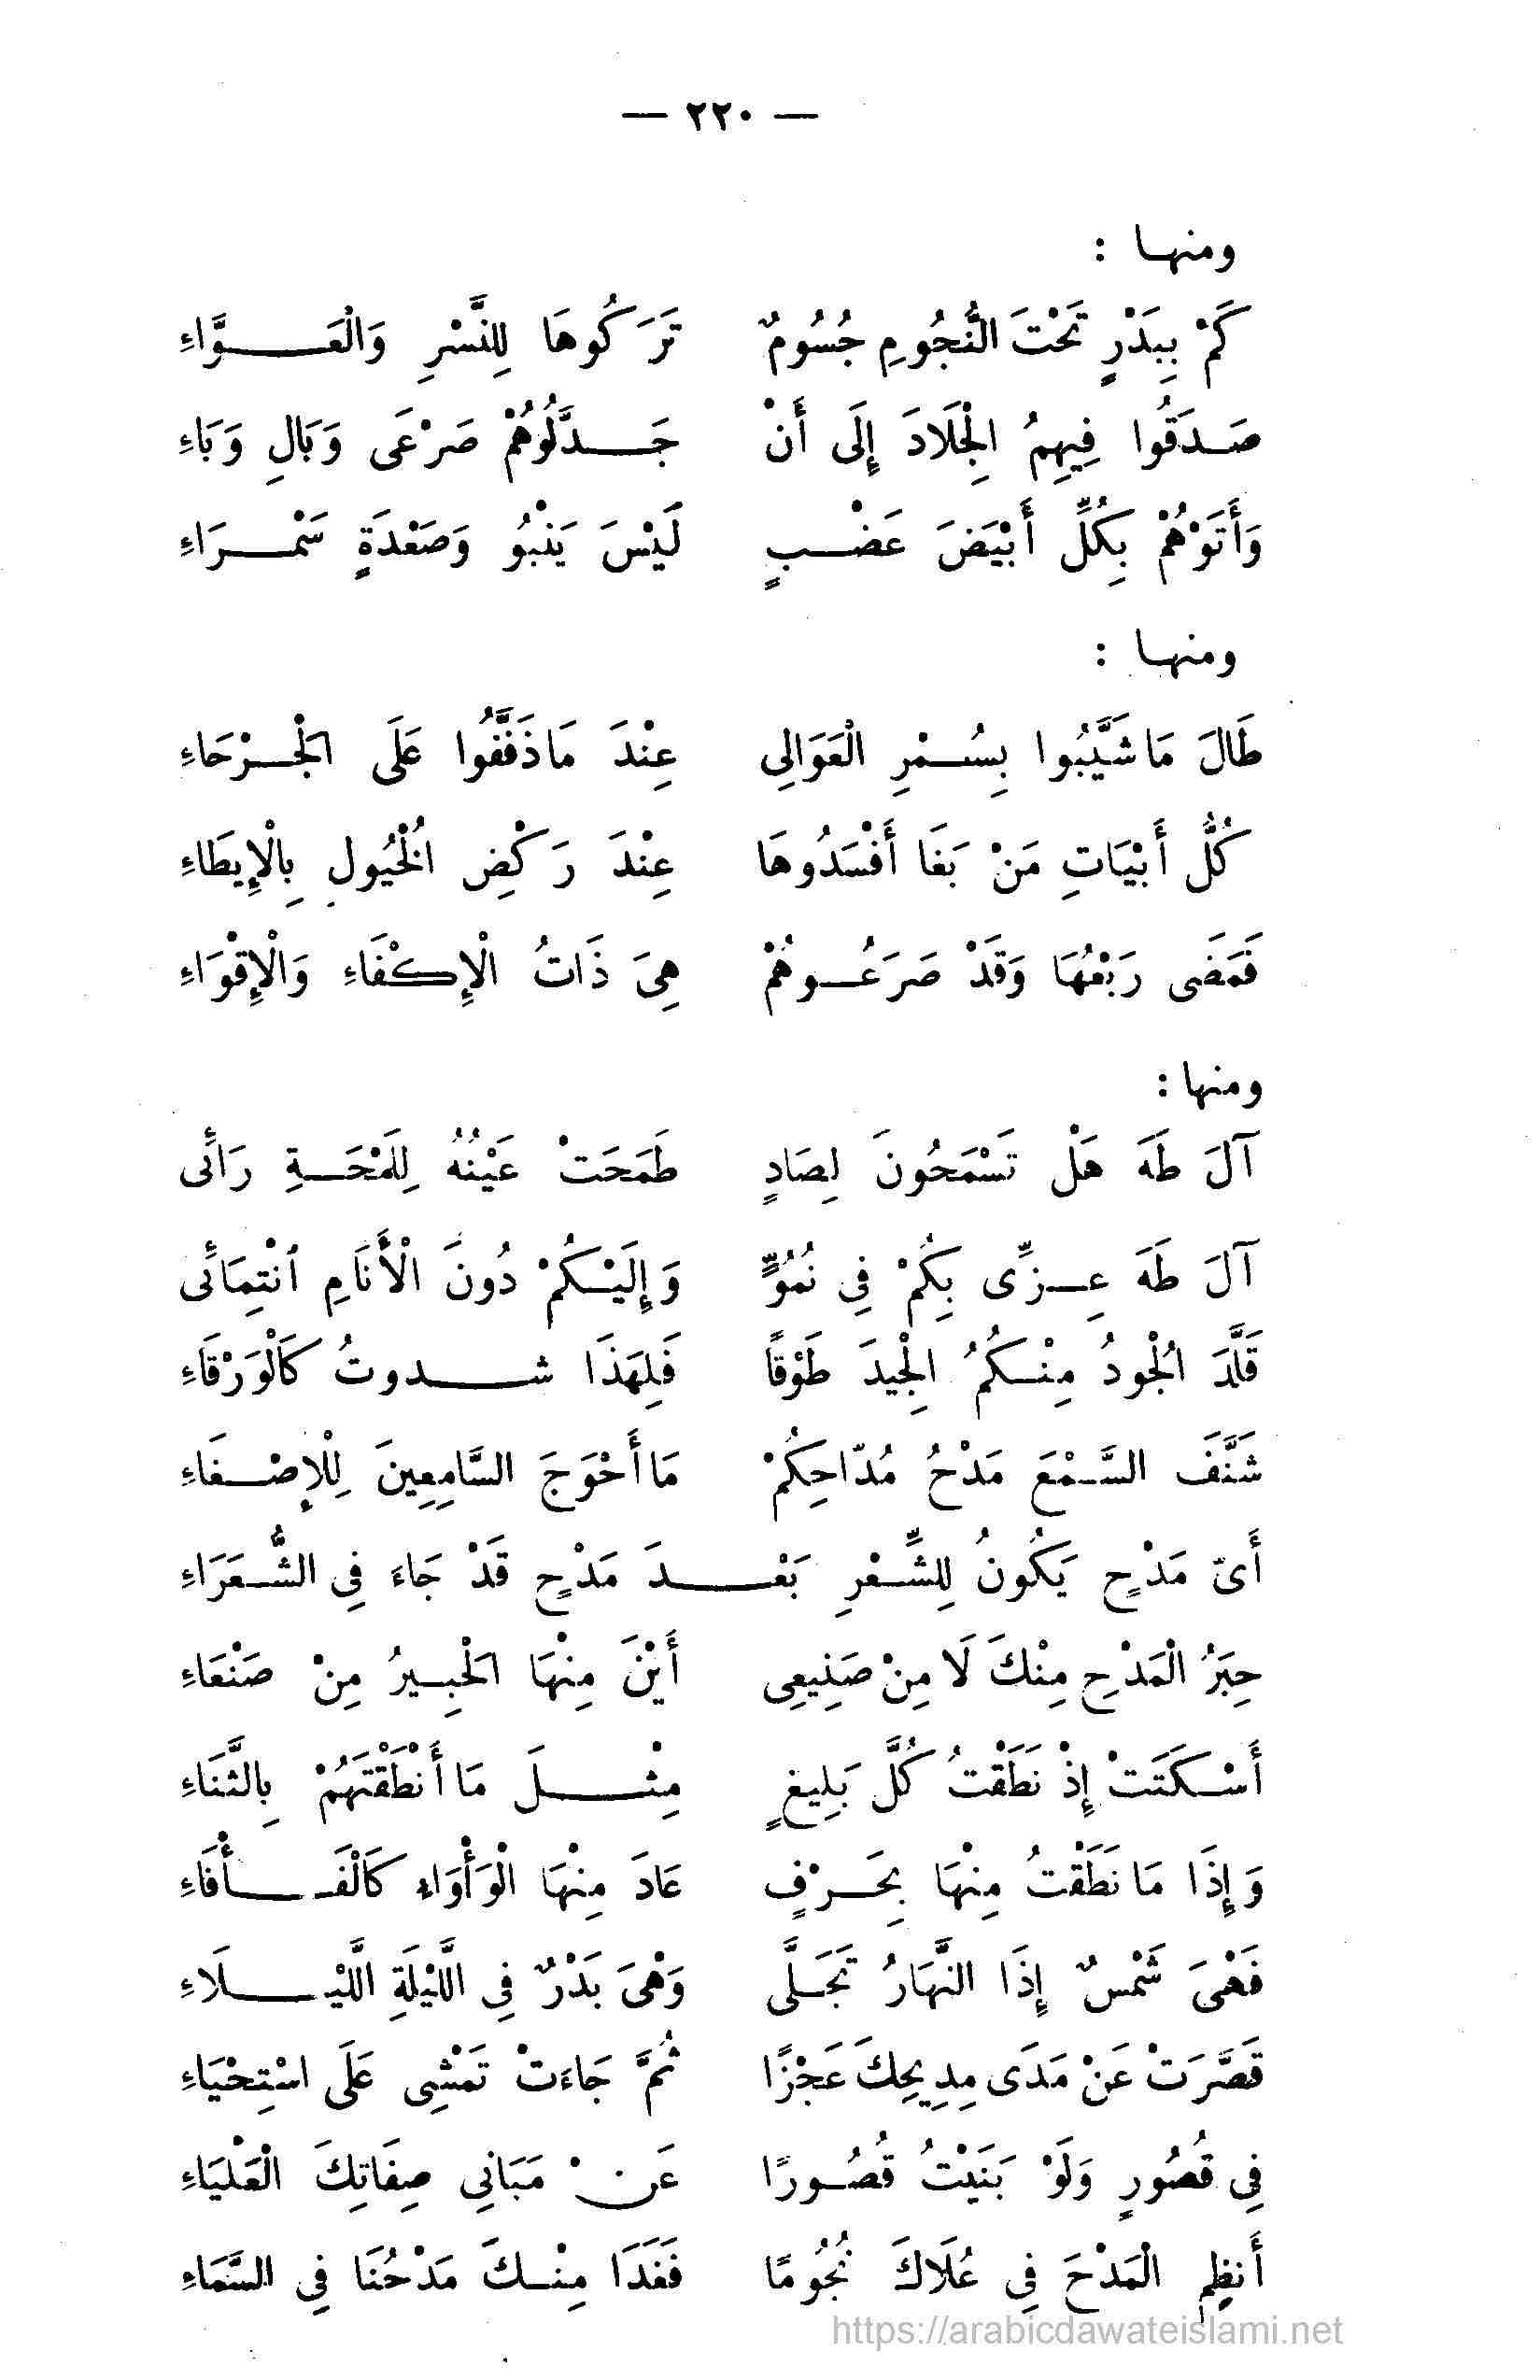 — ٢٢٠ —
ومنها :
كَمْ بِبَدْرٍ تَحْتَ النُّجُومِ جُسُومٌ تَرَكُوهَا لِلنَّسْرِ وَالْعَوَّاءِ
صَدَقُوا فِيهِمُ الْجِلَادَ إِلَى أَنْ جَدَّلُوهُمْ صَرْعَى وَبَالِ وَبَاءِ
وَأَتَوْهُمْ بِكُلِّ أَبْيَضَ عَضْبٍ لَيْسَ يَنْبُو وَصَعْدَةٍ سَمْرَاءِ
ومنها :
طَالَ مَا شَيَّبُوا بِسُمْرِ الْعَوَالِى عِنْدَ مَا ذَفَّفُوا عَلَى الْجَرْحَاءِ
كُلُّ أَبْيَاتِ مَنْ بَغَا أَفْسَدُوهَا عِنْدَ رَكْضِ الْخُيُولِ بِالْإِيطَاءِ
فَمَضَى رَبْعُهَا وَقَدْ صَرَعُوهُمْ هِىَ ذَاتُ الْإِكْفَاءِ وَالْإِقْوَاءِ
ومنها :
آلَ طَهَ هَلْ تَسْمَحُونَ لِصَادٍ طَمَحَتْ عَيْنُهُ لِلَمْحَةِ رَائَى
آلَ طَهَ عِزِّى بِكُمْ فِى نُمُوٍّ وَإِلَيْكُمْ دُونَ الْأَنَامِ ٱنْتِمَائَى
قَلَّدَ الْجُودُ مِنْكُمُ الْجِيدَ طَوْقًا فَلِهَذَا شدوتُ كَالْوَرْقَاءِ
شَنَّفَ السَّمْعَ مَدْحُ مُدّاحِكُمْ مَا أَحْوَجَ السَّامِعِينَ لِلْإِصْغَاءِ
أَىّ مَدْحٍ يَكُونُ لِلشِّعْرِ بَعْدَ مَدْحٍ قَدْ جَاءَ فِى الشُّعَرَاءِ
حِبَرُ الْمَدْحِ مِنْكَ لَا مِنْ صَنِيعِى أَيْنَ مِنْهَا الْحَبِيرُ مِنْ صَنْعَاءِ
أَسْكَتَتْ إِذْ نَطَقْتُ كُلَّ بَلِيغٍ مِثْلَ مَا أَنْطَقْتَهُمْ بِالثَّنَاءِ
وَإِذَا مَا نَطَقْتُ مِنْهَا بِحَرْفٍ عَادَ مِنْهَا الْوَأْوَاءِ كَالْفَأْفَاءِ
فَهْىَ شَمْسٌ إِذَا النَّهَارُ تَجَلَّى وَهْىَ بَدْرٌ فِى اللَّيْلَةِ اللَّيْلَاءِ
قَصَّرَتْ عَنْ مَدَى مِدِيحِكَ عَجْزًا ثُمَّ جَاءَتْ تَمْشِى عَلَى اسْتِحْيَاءِ
فِى قُصُورٍ وَلَوْ بَنَيْتُ قُصُورًا عَنْ مَبَانِى صِفَاتِكَ الْعَلْيَاءِ
أَنظِم الْمَدْحَ فِى عُلَاكَ نُجُومًا فَغَدَا مِنْكَ مَدْحُنَا فِى السَّمَاءِ
https://arabicdawateislami.net